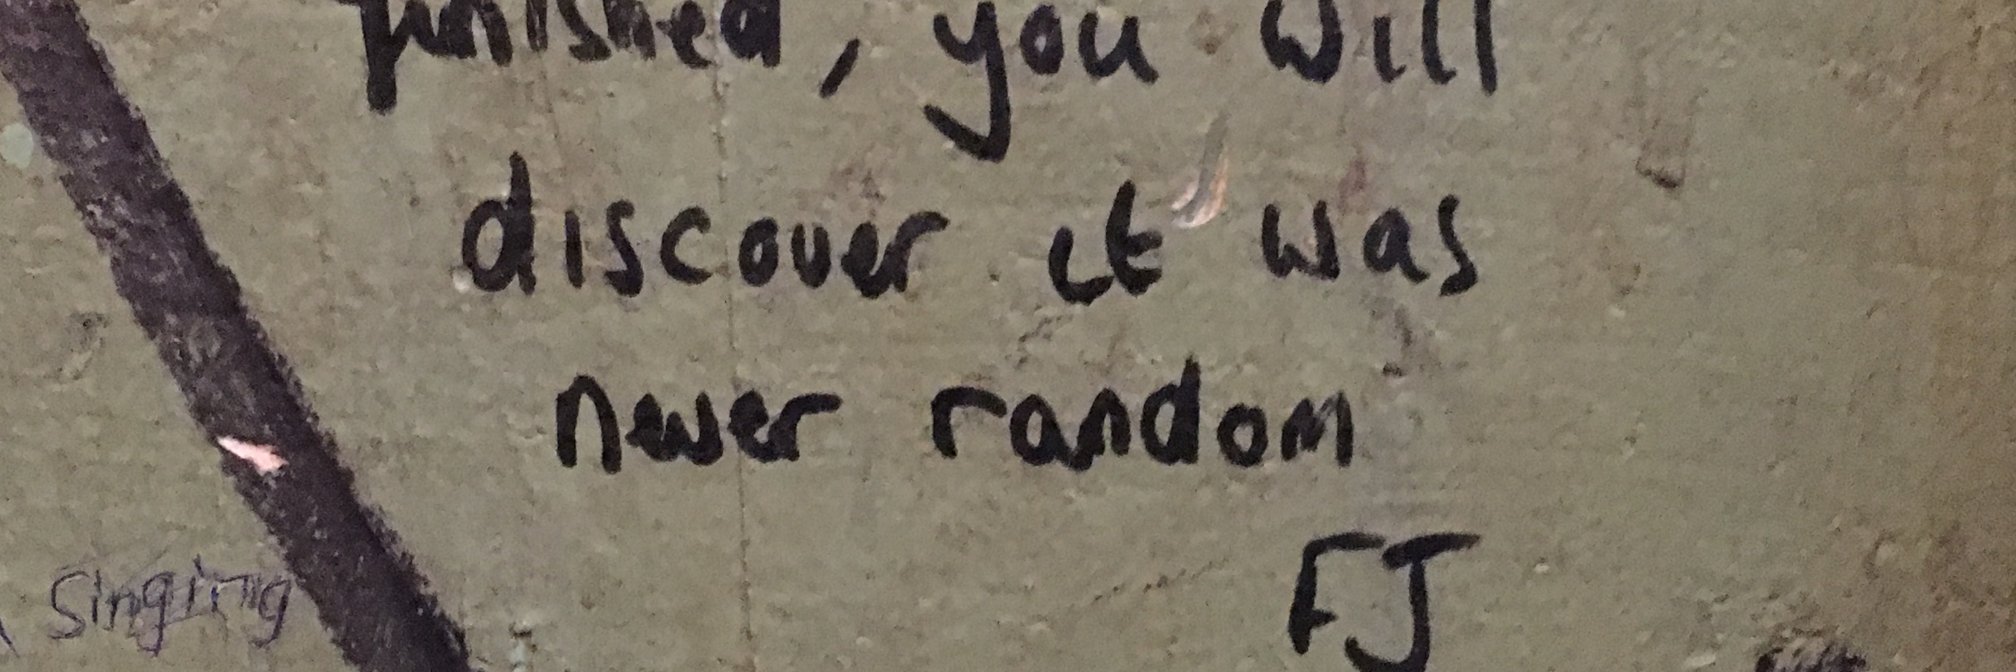 finished, you will
discover it was
never random
FJ
Singing